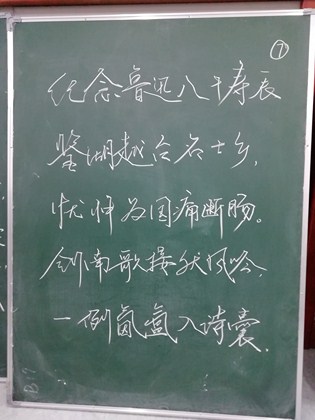 纪念鲁迅八十寿辰
鉴湖越台名士乡,
忧忡为国痛断肠。
剑南歌接秋风吟,
一例氤氲入诗囊.